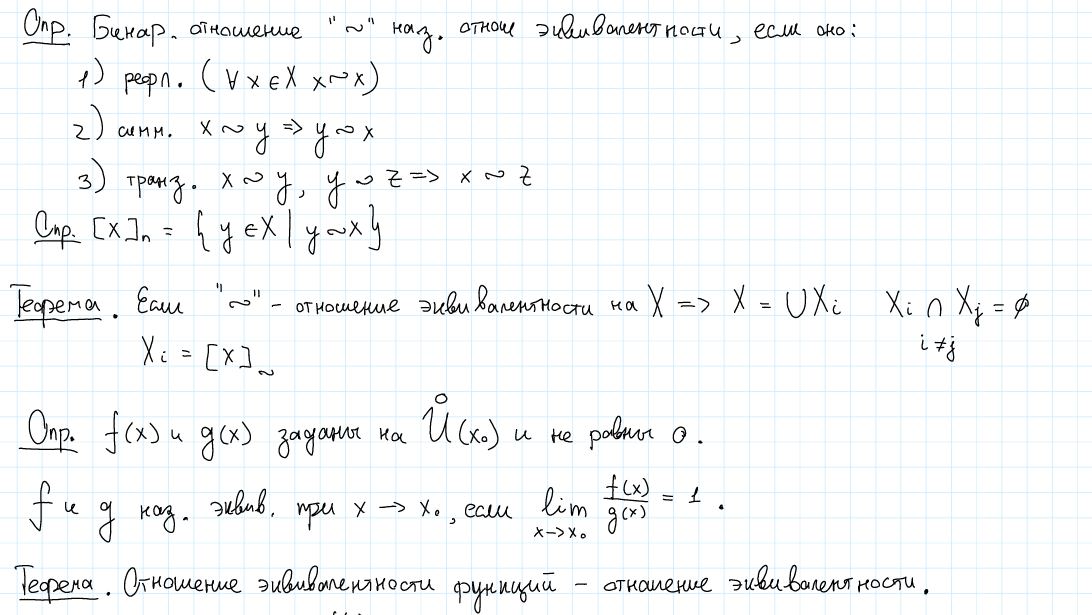 Опр. Бинар. отношение "~" наз. отнош эквивалентности, если оно:
1) рефл. (∀ x ∈ X x ~ x)
2) симм. x ~ y => y ~ x
3) транз. x ~ y, y ~ z => x ~ z
Опр. [x]~ = { y ∈ X | y ~ x }
Теорема. Если "~" - отношение эквивалентности на X => X = ∪ Xi Xi ∩ Xj = ∅
i ≠ j
Xi = [x]~
Опр. f(x) и g(x) заданы на Ů(x₀) и не равны 0.
f и g наз. эквив. при x -> x₀, если lim x->x₀ f(x)/g(x) = 1.
Теорема. Отношение эквивалентности функций - отношение эквивалентности.